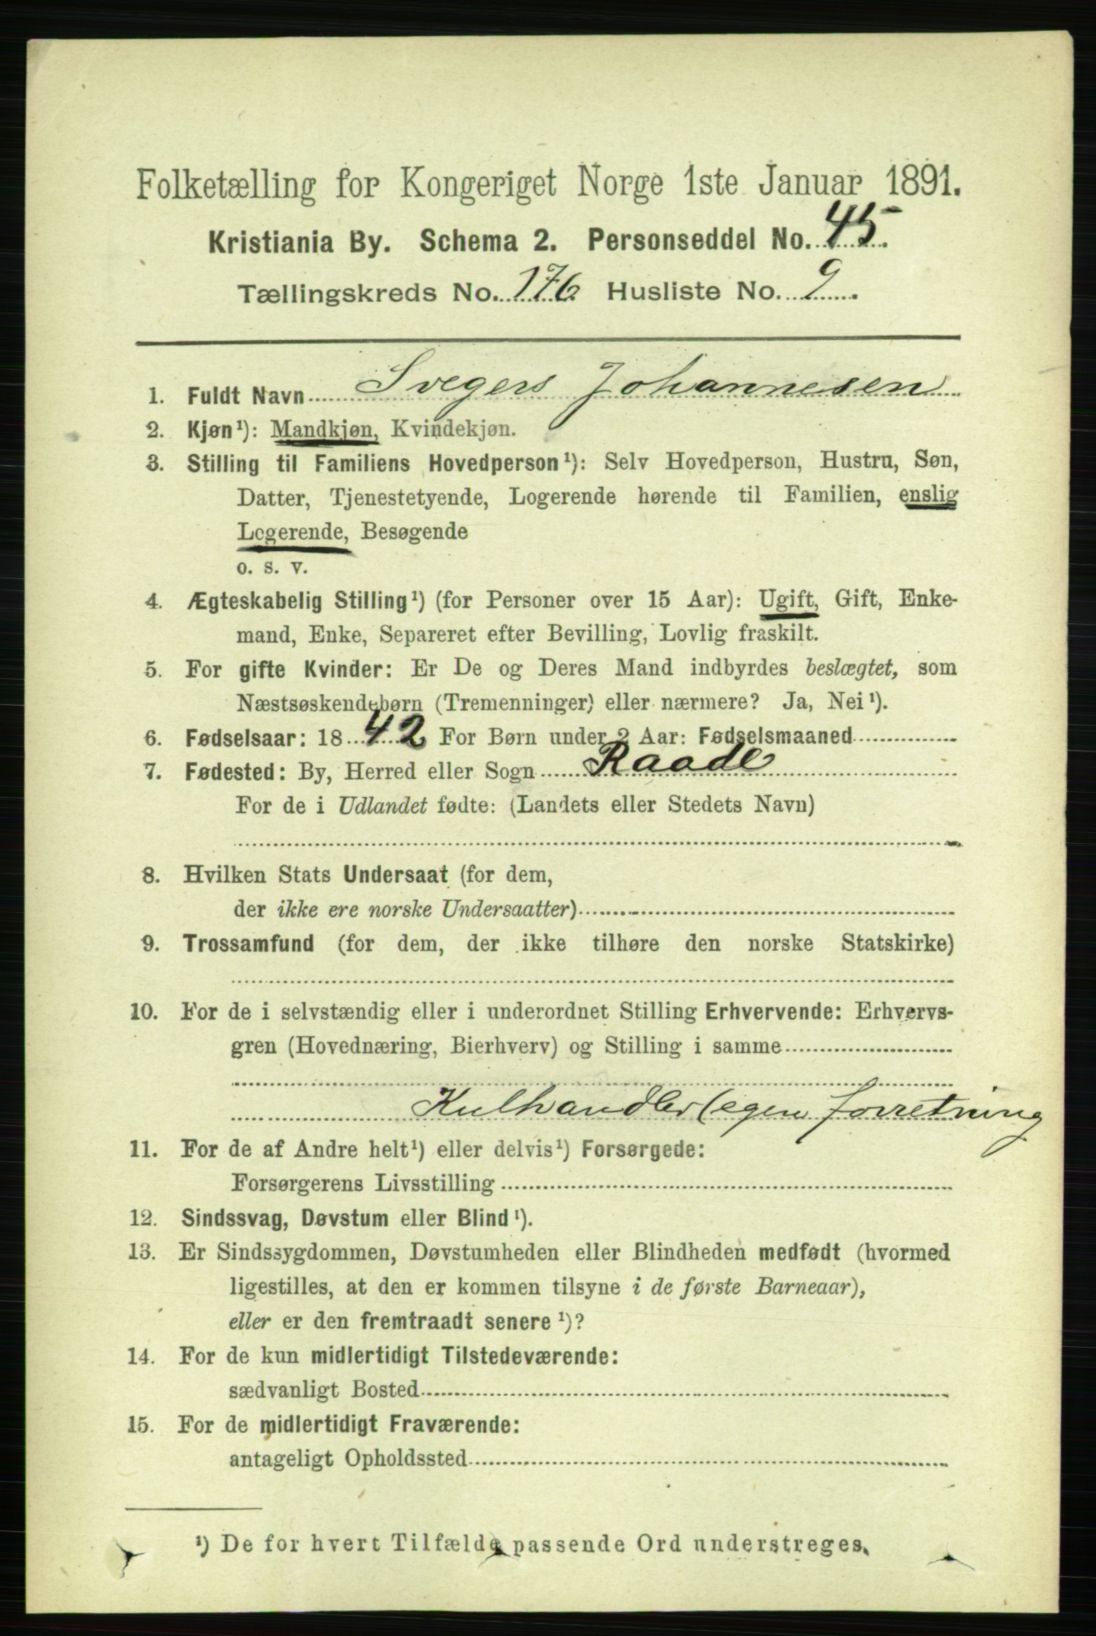 Folketælling for Kongeriget Norge 1ste Januar 1891.
Kristiania By. Schema 2. Personseddel No. 45.
Tællingskreds No. 176 Husliste No. 9.
1. Fuldt Navn Svegers Johannesen
2. Kjøn¹): Mandkjøn, Kvindekjøn.
3. Stilling til Familiens Hovedperson¹): Selv Hovedperson, Hustru, Søn,
Datter, Tjenestetyende, Logerende hørende til Familien, enslig
Logerende, Besøgende
o. s. v.
4. Ægteskabelig Stilling¹) (for Personer over 15 Aar): Ugift, Gift, Enke-
mand, Enke, Separeret efter Bevilling, Lovlig fraskilt.
5. For gifte Kvinder: Er De og Deres Mand indbyrdes beslægtet, som
Næstsøskendebørn (Tremenninger) eller nærmere? Ja, Nei¹).
6. Fødselsaar: 1842 For Børn under 2 Aar: Fødselsmaaned
7. Fødested: By, Herred eller Sogn Raade
For de i Udlandet fødte: (Landets eller Stedets Navn)
8. Hvilken Stats Undersaat (for dem,
der ikke ere norske Undersaatter)
9. Trossamfund (for dem, der ikke tilhøre den norske Statskirke)
10. For de i selvstændig eller i underordnet Stilling Erhvervende: Erhvervs-
gren (Hovednæring, Bierhverv) og Stilling i samme
Kulhandler (egen forretning
11. For de af Andre helt¹) eller delvis¹) Forsørgede:
Forsørgerens Livsstilling
12. Sindssvag, Døvstum eller Blind¹).
13. Er Sindssygdommen, Døvstumheden eller Blindheden medfødt (hvormed
ligestilles, at den er kommen tilsyne i de første Barneaar),
eller er den fremtraadt senere¹)?
14. For de kun midlertidigt Tilstedeværende:
sædvanligt Bosted
15. For de midlertidigt Fraværende:
antageligt Opholdssted
¹) De for hvert Tilfælde passende Ord understreges.